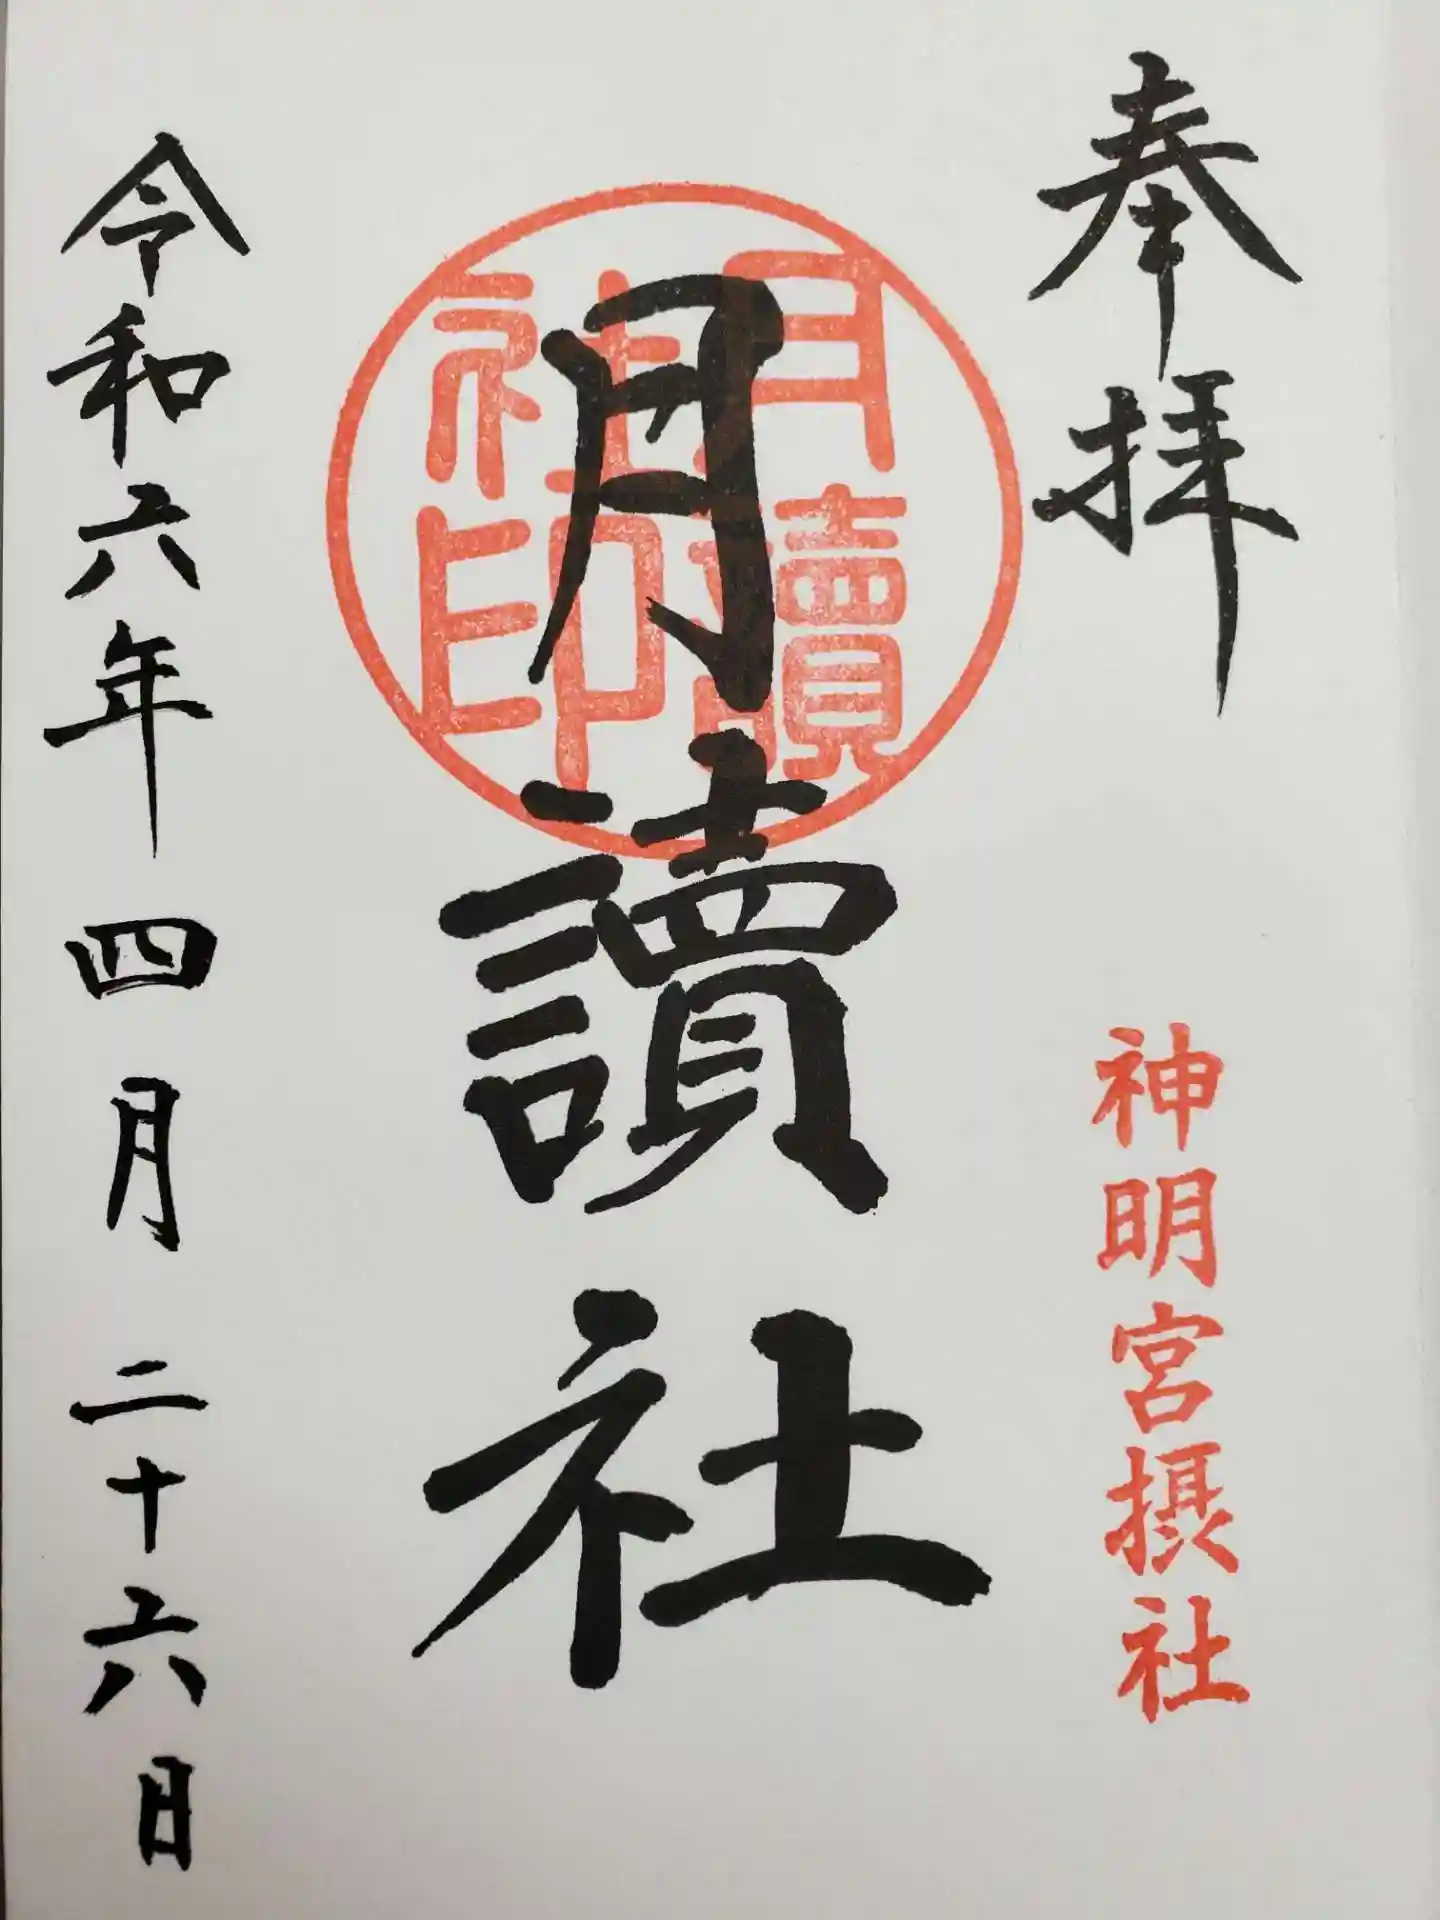 奉拝
神明宮摂社
月讀社
月讀
社印
令和六年四月二十六日